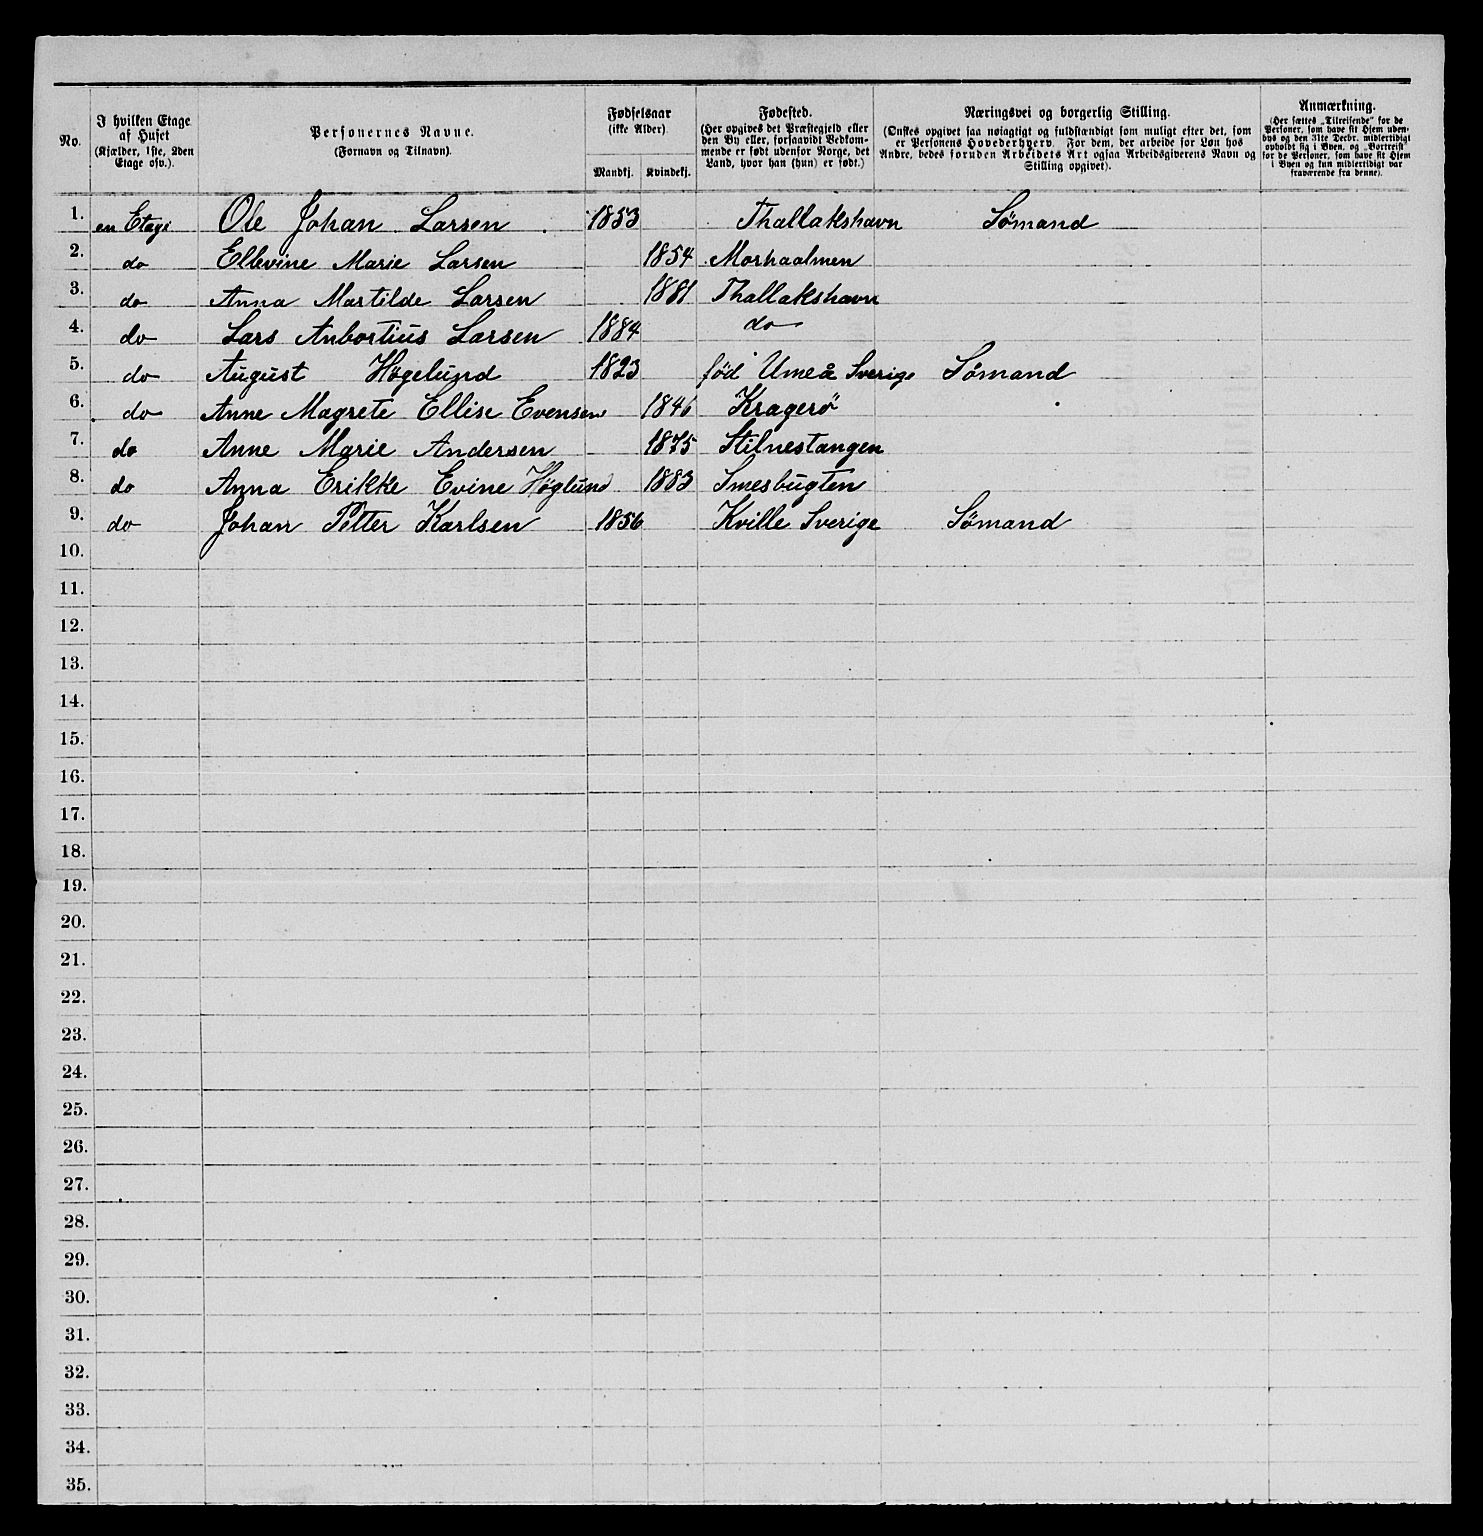 No.
I hvilken Etage af Huset (Kjælder, 1ste, 2den Etage osv.).
Personernes Navne. (Fornavn og Tilnavn).
Fødselsaar (ikke Alder). Mandkj. Kvindekj.
Fødested. (Her opgives det Præstegjeld eller den By eller, forsaavidt Vedkommende er født udenfor Norge, det Land, hvor han (hun) er født.)
Næringsvei og borgerlig Stilling. (Ønskes opgivet saa nøiagtigt og fuldstændigt som muligt efter det, som er Personens Hovederhverv. For dem, der arbeide for Løn hos Andre, bedes foruden Arbeidets Art ogsaa Arbeidsgiverens Navn og Stilling opgivet).
Anmærkning. (Her sættes „Tilreisende" for de Personer, som have sit Hjem udenbys og den 31te Decbr. midlertidigt opholdt sig i Byen, og „Bortreist" for de Personer, som have sit Hjem i Byen og kun midlertidigt var fraværende fra denne).
1. en Etage Ole Johan Larsen 1853 Thallakshavn Sømand
2. do Ellevine Marie Larsen 1854 Morhaalmen
3. do Anna Martilde Larsen 1881 Thallakshavn
4. do Lars Anbortius Larsen 1884 do
5. do August Høgelund 1823 fød Umeå Sverige Sømand
6. do Anne Magrete Ellise Evensen 1846 Kragerö
7. do Anne Marie Andersen 1875 Stilnestangen
8. do Anna Erikke Evine Høglund 1883 Smesbugten
9. do Johan Petter Karlsen 1856 Kville Sverige Sömand
10.
11.
12.
13.
14.
15.
16.
17.
18.
19.
20.
21.
22.
23.
24.
25.
26.
27.
28.
29.
30.
31.
32.
33.
34.
35.